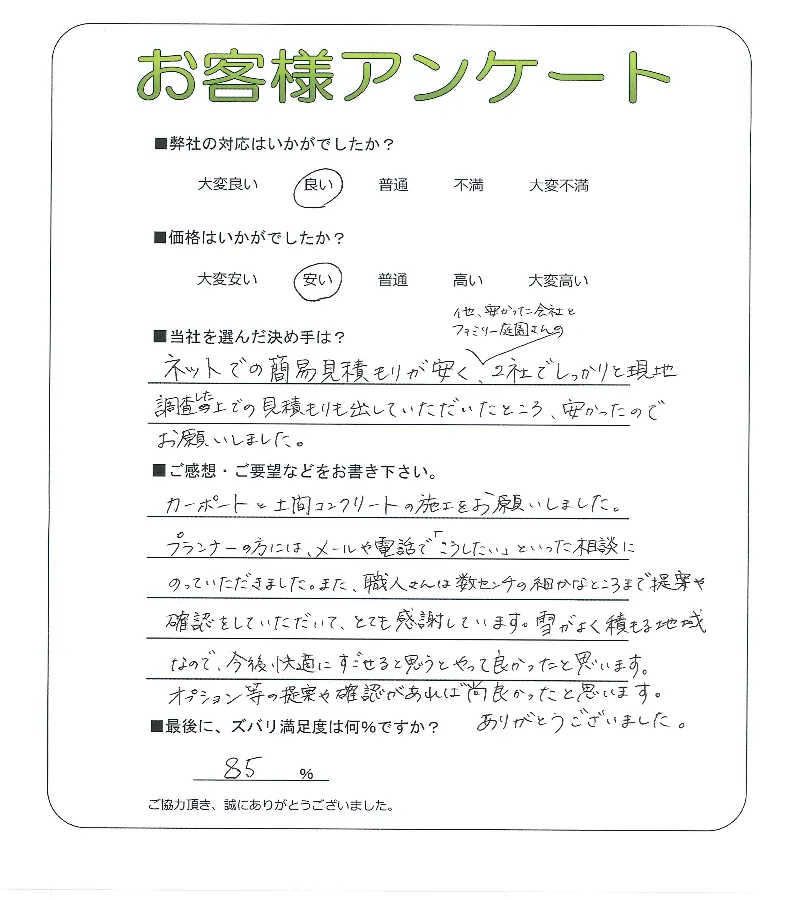 お客様アンケート
■弊社の対応はいかがでしたか？
大変良い 良い 普通 不満 大変不満
■価格はいかがでしたか？
大変安い 安い 普通 高い 大変高い
他、安かった会社と
ファミリー庭園さんの
■当社を選んだ決め手は？
ネットでの簡易見積もりが安く、2社でしっかりと現地
調査した上での見積もりも出していただいたところ、安かったので
お願いしました。
■ご感想・ご要望などをお書き下さい。
カーポートと土間コンクリートの施工をお願いしました。
プランナーの方には、メールや電話で「こうしたい」といった相談に
のっていただきました。また、職人さんは数センチの細かなところまで提案や
確認をしていただいて、とても感謝しています。雪がよく積もる地域
なので、今後快適にすごせると思うとやって良かったと思います。
オプション等の提案や確認があれば尚良かったと思います。
■最後に、ズバリ満足度は何%ですか？
ありがとうございました。
85 %
ご協力頂き、誠にありがとうございました。